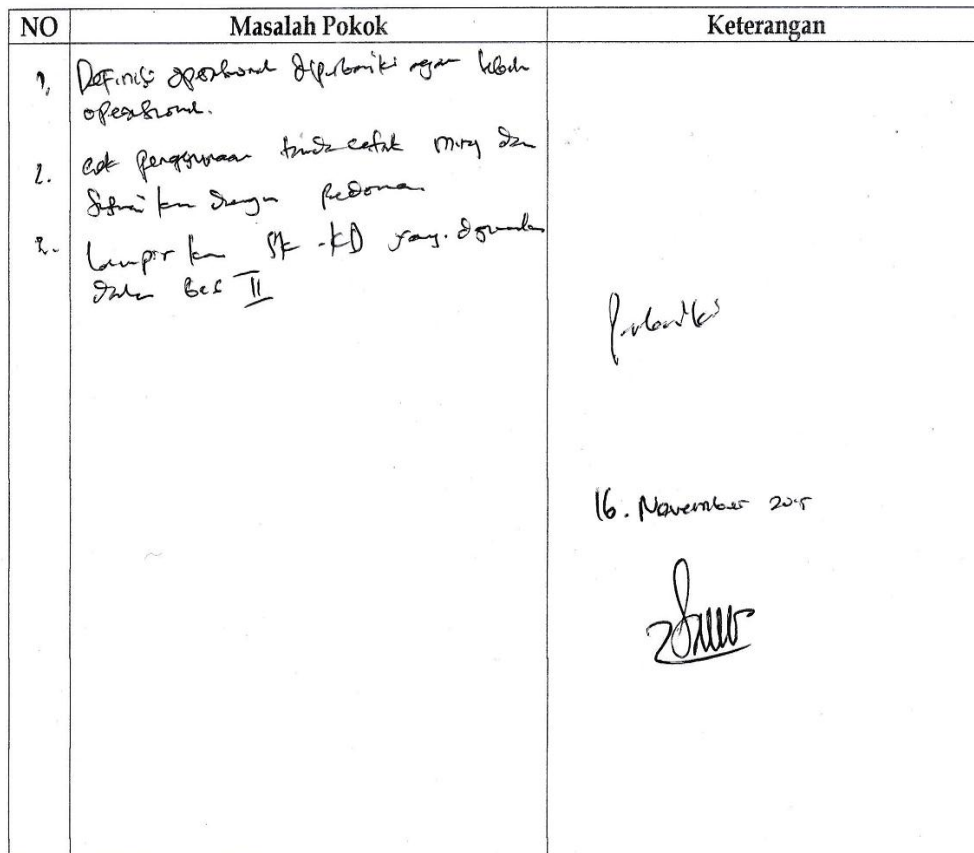 NO Masalah Pokok Keterangan
1. Definisi operasional diperbaiki agar lebih
operasional.
2. cek penggunaan tanda cetak miring dan
sesuaikan dengan pedoman
3. Lampirkan SK-KD yang digunakan
dalam Bab II
Perbaiki
16. November 2015